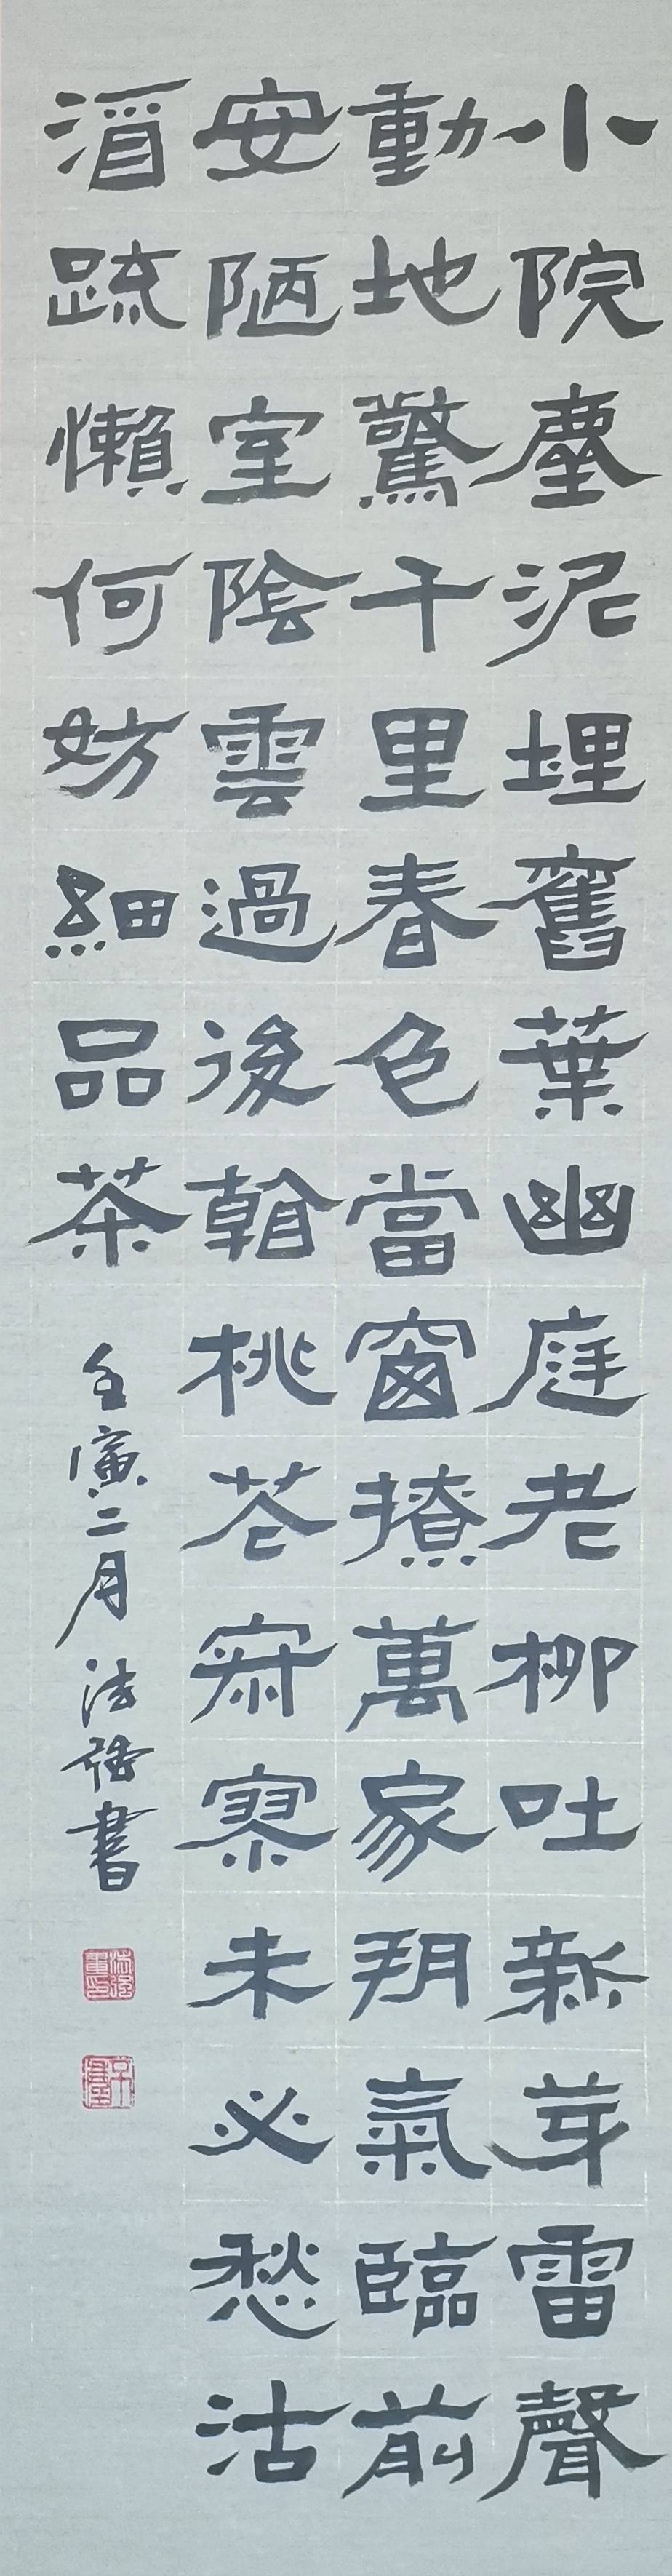 小院塵泥埋舊葉幽庭老柳吐新芽雷聲
動地驚千里春色當窗撩萬家朔氣臨前
安陋室陰雲過後翰桃芲寂寥未必愁沽
酒疏懶何妨細品茶
壬寅二月法強書